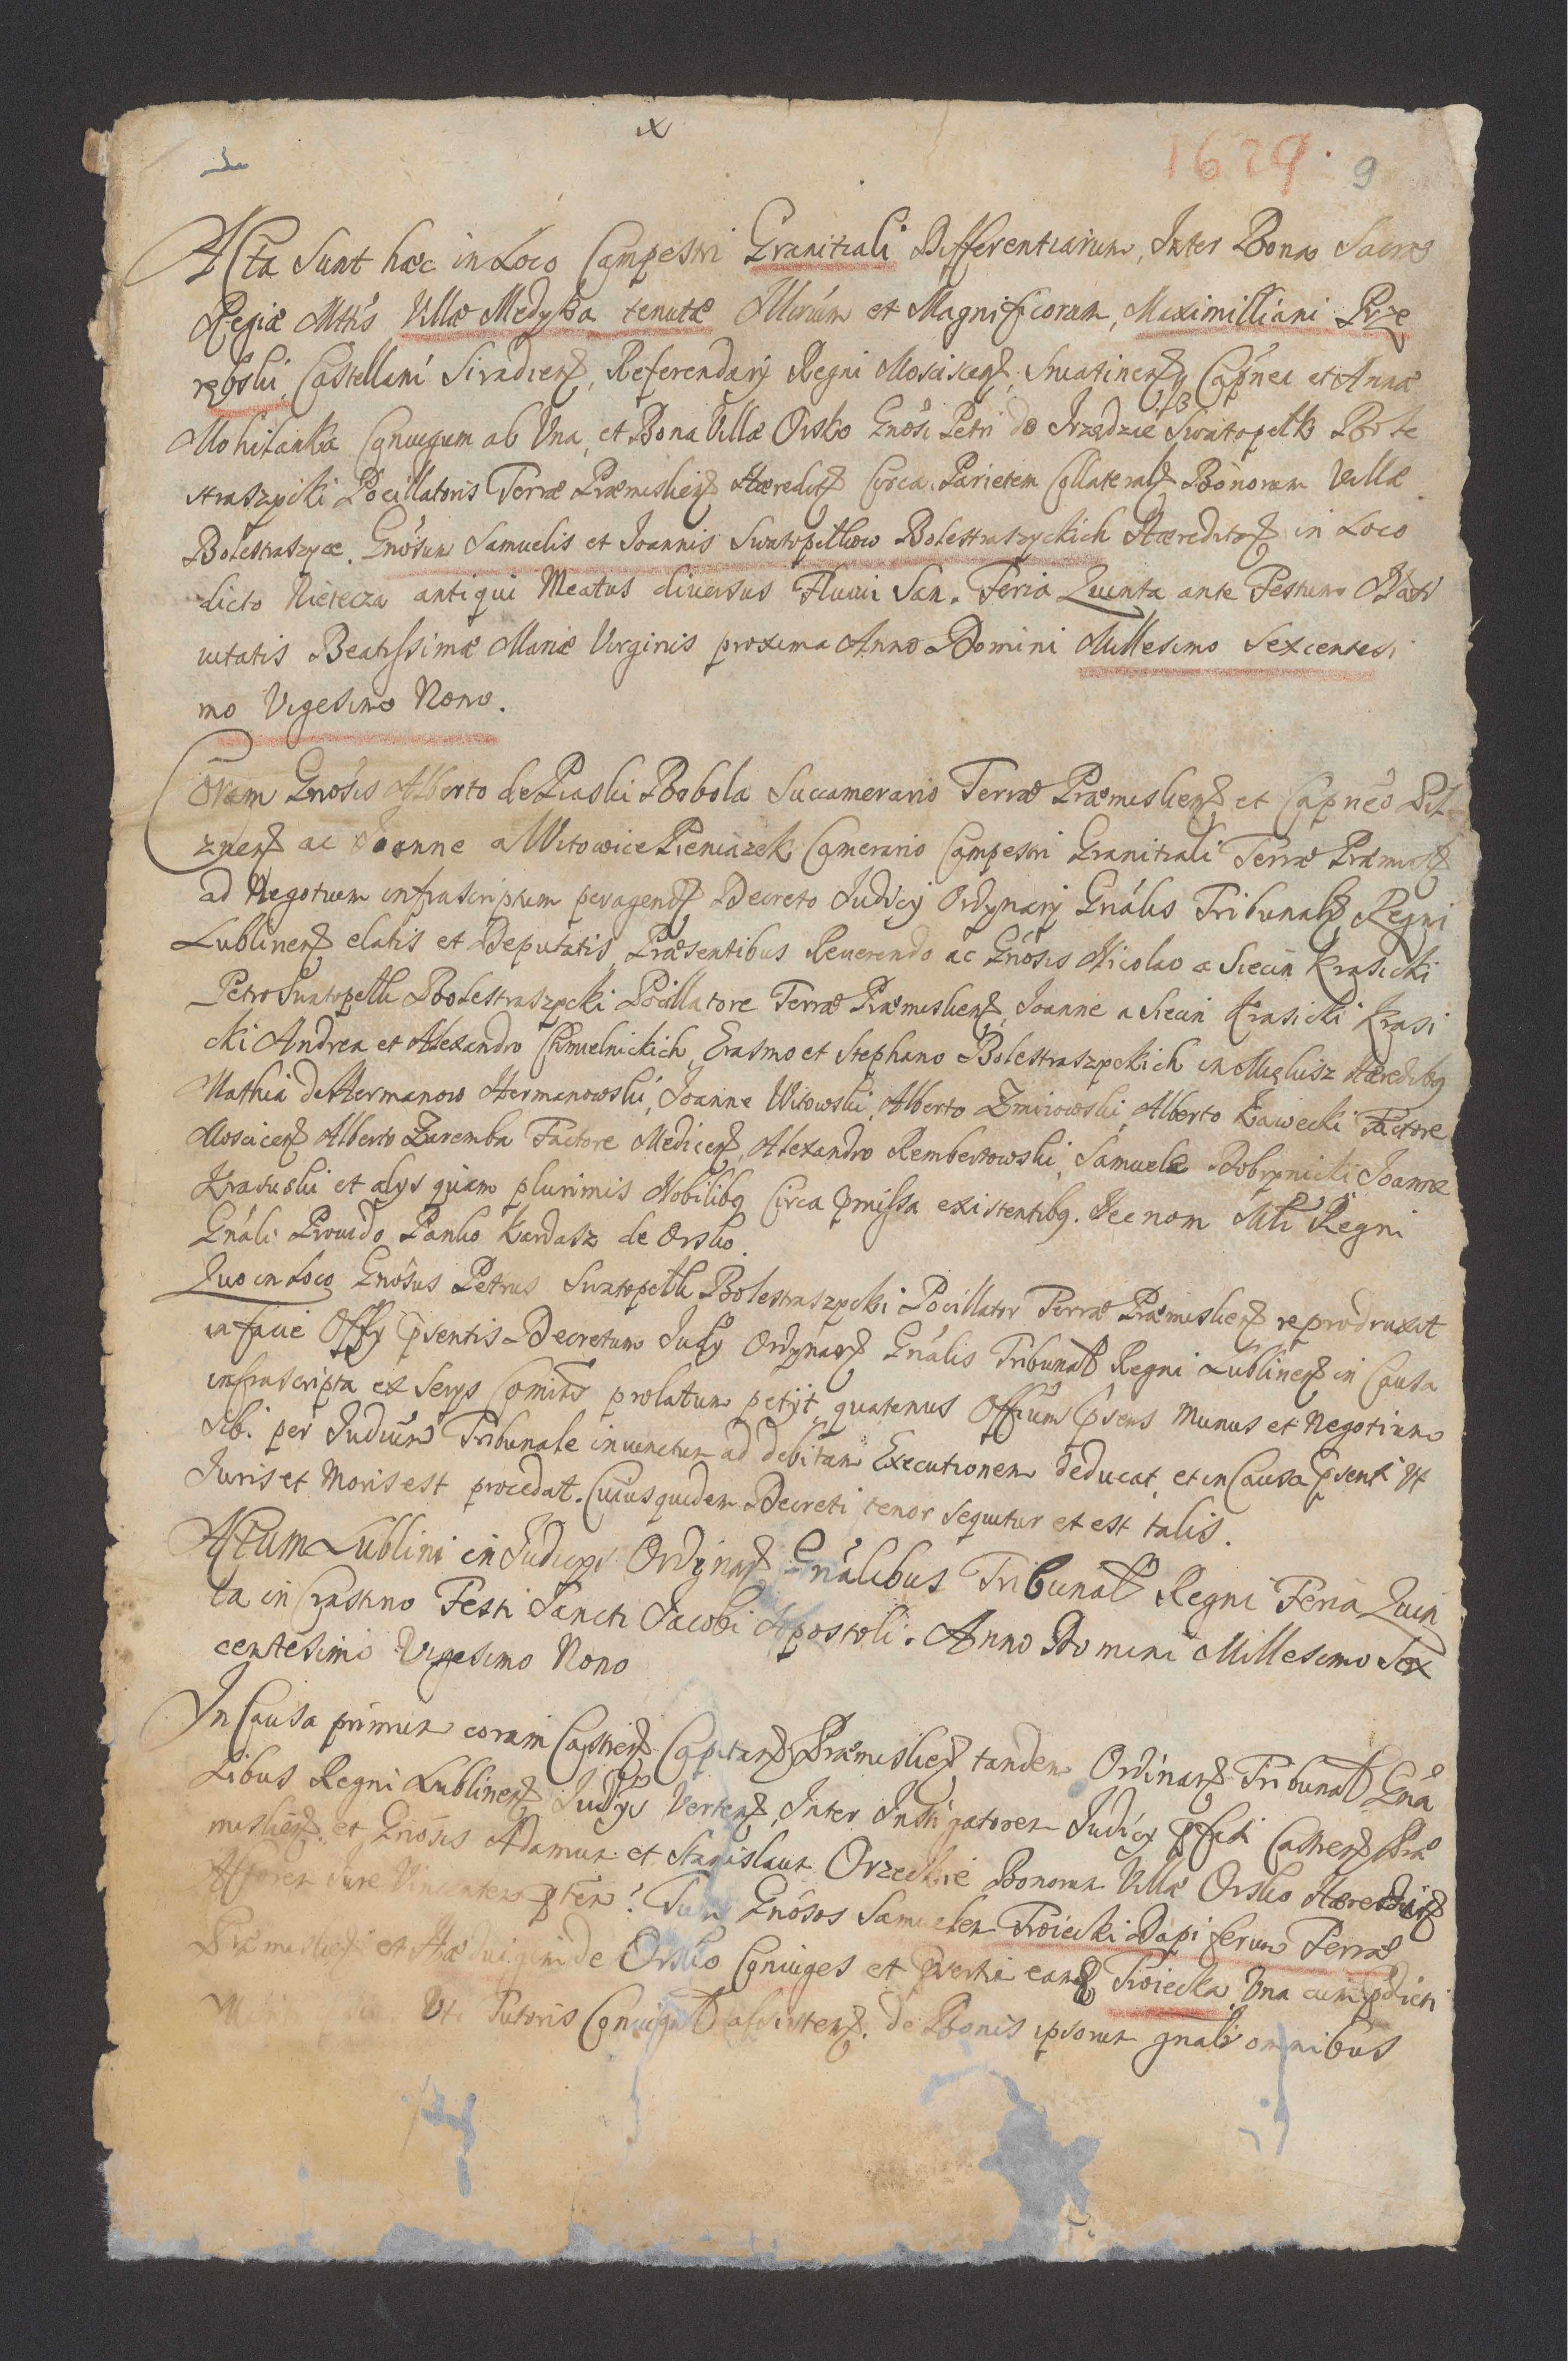 x
1629. 9
Acta Sunt hæc in Loco Campestri Granitiali Differentiarum, Inter Bona Sacræ
Regiæ Mttis Villæ Medyka tenutæ Illrium et Magnificorum, Maximilliani Prze
rębski, Castellani Siradien, Referendarij Regni Mosciscen, Sniatinen q Capnei et Annæ
Mohilanka Conuigum ab Vna, et Bona Villæ Orsko Gnosi Petri de Irządzie Swatopełk Bole
straszycki Pocillatoris Terræ Præmislien Hæredit Circa Parietem Collateral Bonorum Villæ
Bolestraszyce. Gnosum Samuelis et Joannis Swatopełkow Bolestraszyckich Hæredit in Loco
dicto Nietecza antiqui Meatus diuersus Fluuii San. Feria Quinta ante Festum Nati
uitatis Beatissimæ Mariæ Virginis proxima Anno Domini Millesimo Sexcentesi
mo Vigesimo Nono.
Coram Gnosis Alberto de Piaski Bobola Succamerario Terræ Præmislien et Capneo Pil
znen ac Joanne a Witowice Pieniazek Camerario Campestri Granitiali Terræ Præmisl
ad Negotium infrascriptum peragend Decreto Judicij Ordynarij Gnalis Tribunal Regni
Lublinen elatis et Deputatis, Præsentibus Reuerendo ac Gnosis Nicolao a Siecin Krasicki
Petro Swatopełk Bolestraszycki Pocillatore Terræ Præmislien, Joanne a Siecin Krasicki Krasi
cki Andrea et Alexandro Chmielnickich, Erasmo et Stephano Bolestraszyckich in Hæredibq
Mathia de Hermanow Hermanowski, Joanne Witowski, Alberto Zmiiowski, Alberto Ławecki Factore
Moscicen Alberto Zaremba Factore Medicen, Alexandro Rembertowski, Samuele Dobrynicki Joanne
Krasuski et alys quam plurimis Nobilibq Circa pmissa existentibq. Nec non Mli Regni
Gnali Prouido Panko Kardasz de Orsko.
Quo in Loco Gnosus Petrus Swatopełk Bolestraszycki Pocillator Terræ Præmislien reproduxit
in facie Offy psentis Decretum Judy Ordynar Gnalis Tribunal Regni Lublinen in Causa
infrascripta ex Serys Comitis prolatum petijt quatenus Offium psens Munus et Negotium
sibi per Judicium Tribunale iniunctum ad debitam Executionem deducat, et in Causa psenti Vt
Juris et Moris est procedat. Cuius quidem Decreti tenor sequitur et est talis.
Actum Lublini in Judicys Ordynar Gnalibus Tribunal Regni Feria Quin
ta in Crastino Festi Sancti Jacobi Apostoli. Anno Domini Millesimo Sex
centesimo Vigesimo Nono
In Causa primum coram Castren Capitan Præmislien tandem Ordinar Tribunal Gna
libus Regni Lublinen Judys Verten, Inter Instigatorem Judicij pfati Castren Præ
mislien et Gnosis Adamum et Stanislaum Orzechie Bonorum Villæ Orsko Hæredit
Actorem Jure Vincentem Gnosos Samuelem Troiecki Dapiferum Terræ
Præmislien et Hæduigim de Orsko Coniuges et Troiecka Vna cum pdicti
Vt Tutoris de Bonis ipsorum gnalr omnibus